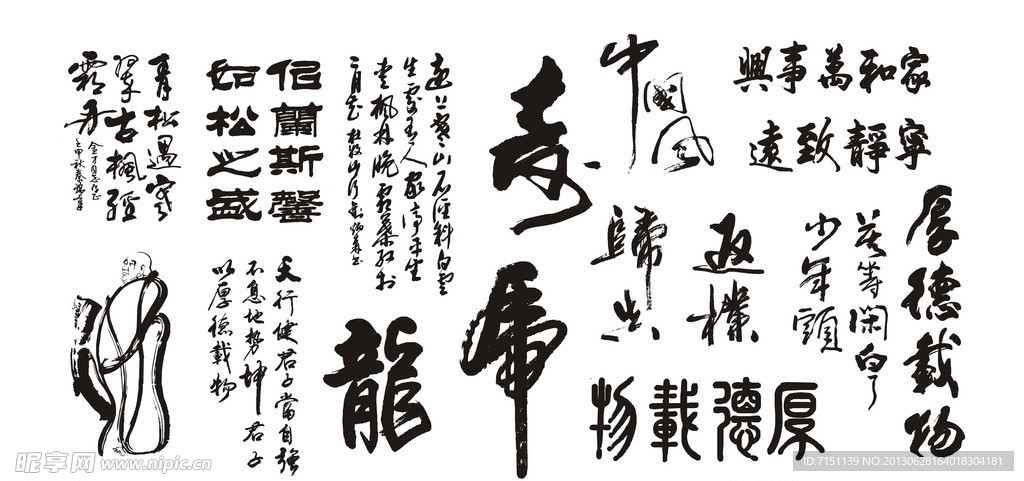 厚德載物
家和萬事興
寧靜致遠
莫等閑白了
少年頭
中國風
返樸
歸真
厚德載物
寿
虎
遠上寒山石徑斜白雲
生處有人家停車坐
愛楓林晚霜葉紅於
二月花 杜牧山行
龍
佀蘭斯馨
如松之盛
天行健君子當自強
不息地勢坤君子
以厚德載物
青松遇寒
翠古楓經
霜丹
昵享网 www.nipic.cn
ID:7151139 NO:20130628164018304181